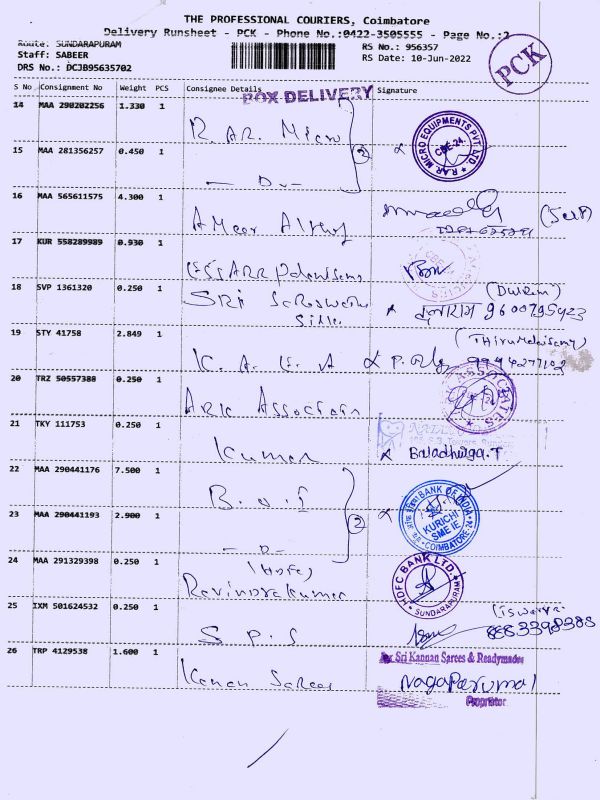 THE PROFESSIONAL COURIERS, Coimbatore
Delivery Runsheet - PCK - Phone No.:0422-3505555 - Page No.:2
Route: SUNDARAPURAM
RS No.: 956357
Staff: SABEER
RS Date: 10-Jun-2022
DRS No.: DCJB95635702
PCK
S No Consignment No Weight PCS Consignee Details Signature
BOX DELIVERY
14 MAA 290202256 1.330 1
R. AR. Micro
RAR MICRO EQUIPMENTS PVT. LTD
CBE-24
15 MAA 281356257 0.450 1
2
16 MAA 565611575 4.300 1
(Self)
17 KUR 558289989 0.930 1
18 SVP 1361320 0.250 1
Sri
9600795423
19 STY 41758 2.849 1
K. A.
20 TRZ 50557388 0.250 1
ARK
ASSOCIATES
21 TKY 111753 0.250 1
Kumar
Baladhurga.T
22 MAA 290441176 7.500 1
B. O. I
2
BANK OF INDIA
KURICHI
SME IE
COIMBATORE
23 MAA 290441193 2.900 1
24 MAA 291329398 0.250 1
Ravindrakumar
HDFC BANK LTD.
SUNDARAPURAM
25 IXM 501624532 0.250 1
S P. S
26 TRP 4129538 1.600 1
Kanan Sarees
Sri Kannan Sarees & Readymades
Nagaperumal
Proprietor